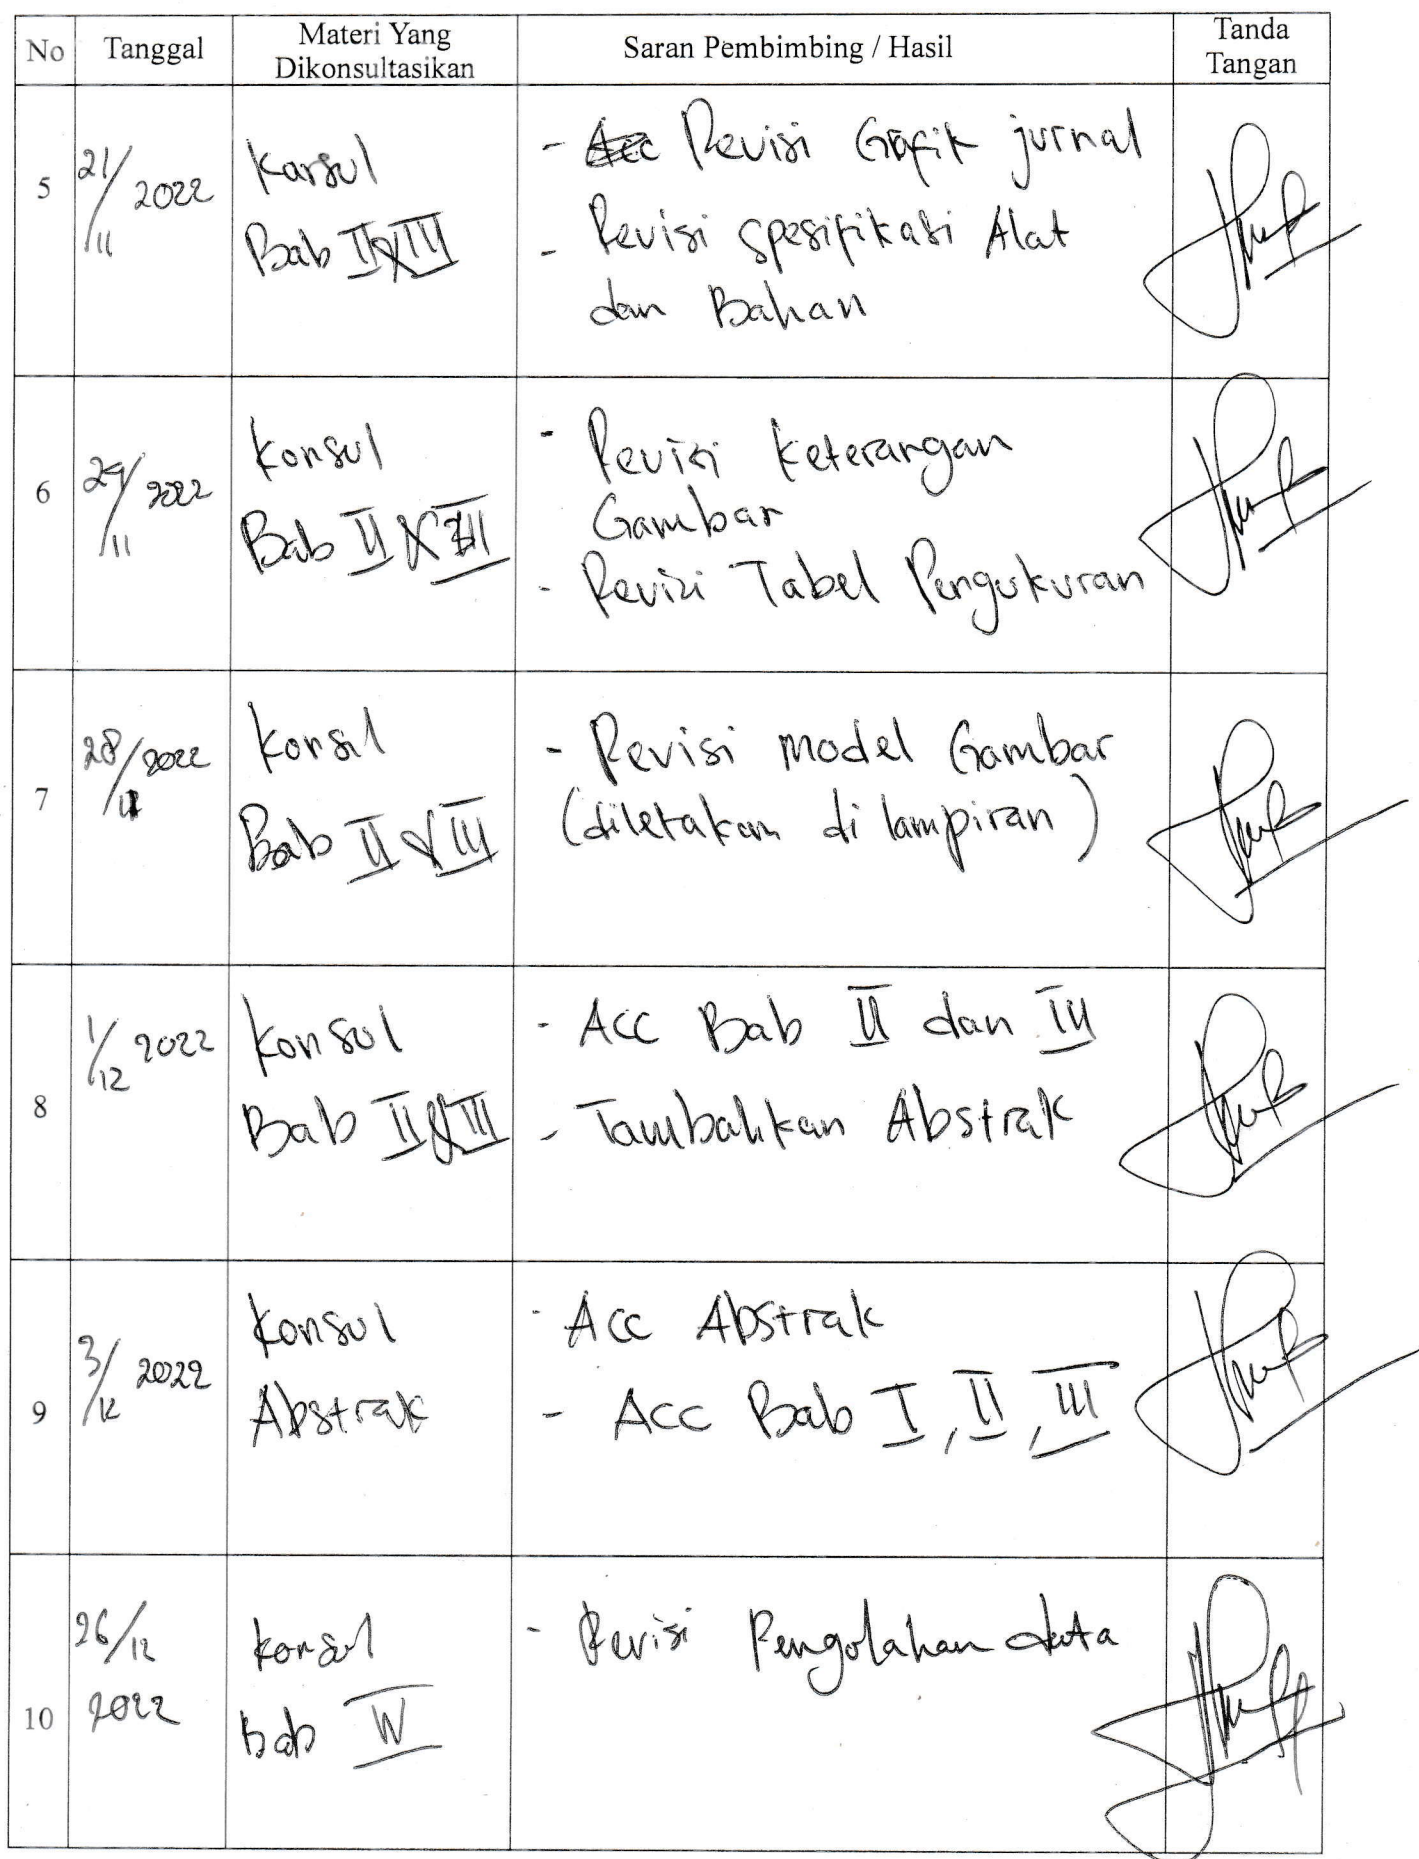 No Tanggal Materi Yang Dikonsultasikan Saran Pembimbing / Hasil Tanda Tangan
5 21/11 2022
Konsul
Bab II & III
- Acc Revisi Grafik jurnal
- Revisi spesifikasi Alat
dan Bahan
6 29/11 2022
Konsul
Bab II & III
- Revisi Keterangan
Gambar
- Revisi Tabel Pengukuran
7 28/11 2022
Konsul
Bab II & III
- Revisi model Gambar
(diletakan di lampiran)
8 1/12 2022
Konsul
Bab II & III
- Acc Bab II dan III
- Tambahkan Abstrak
9 3/12 2022
Konsul
Abstrak
- Acc Abstrak
- Acc Bab I, II, III
10 26/12
2022
Konsul
bab IV
- Revisi Pengolahan data